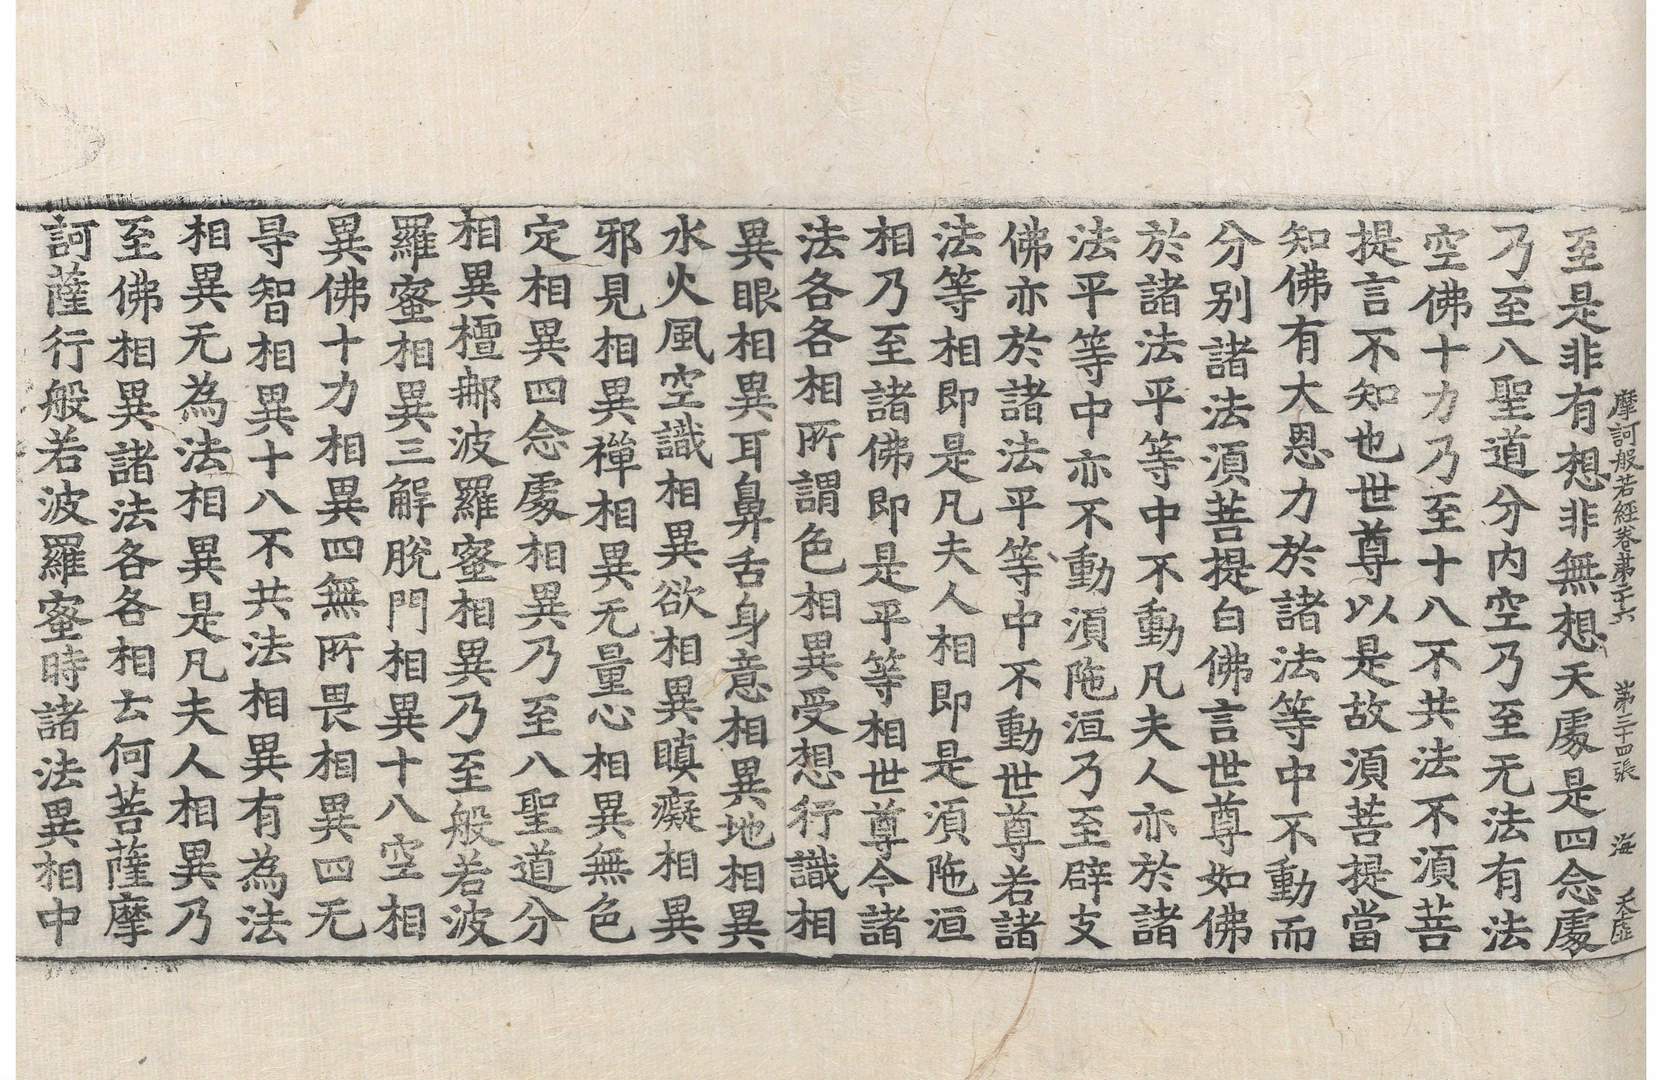 摩訶般若經卷第二十六 第三十四張 海 天虛
至是非有想非無想天處是四念處
乃至八聖道分内空乃至无法有法
空佛十力乃至十八不共法不湏菩
提言不知也世尊以是故湏菩提當
知佛有大恩力於諸法等中不動而
分别諸法湏菩提白佛言世尊如佛
於諸法平等中不動凡夫人亦於諸
法平等中亦不動湏陁洹乃至辟支
佛亦於諸法平等中不動世尊若諸
法等相即是凡夫人相即是湏陁洹
相乃至諸佛即是平等相世尊今諸
法各各相所謂色相異受想行識相
異眼相異耳鼻舌身意相異地相異
水火風空識相異欲相異瞋癡相異
邪見相異禪相異无量心相異無色
定相異四念處相異乃至八聖道分
相異檀那波羅蜜相異乃至般若波
羅蜜相異三解脫門相異十八空相
異佛十力相異四無所畏相異四无
㝵智相異十八不共法相異有為法
相異无為法相異是凡夫人相異乃
至佛相異諸法各各相云何菩薩摩
訶薩行般若波羅蜜時諸法異相中